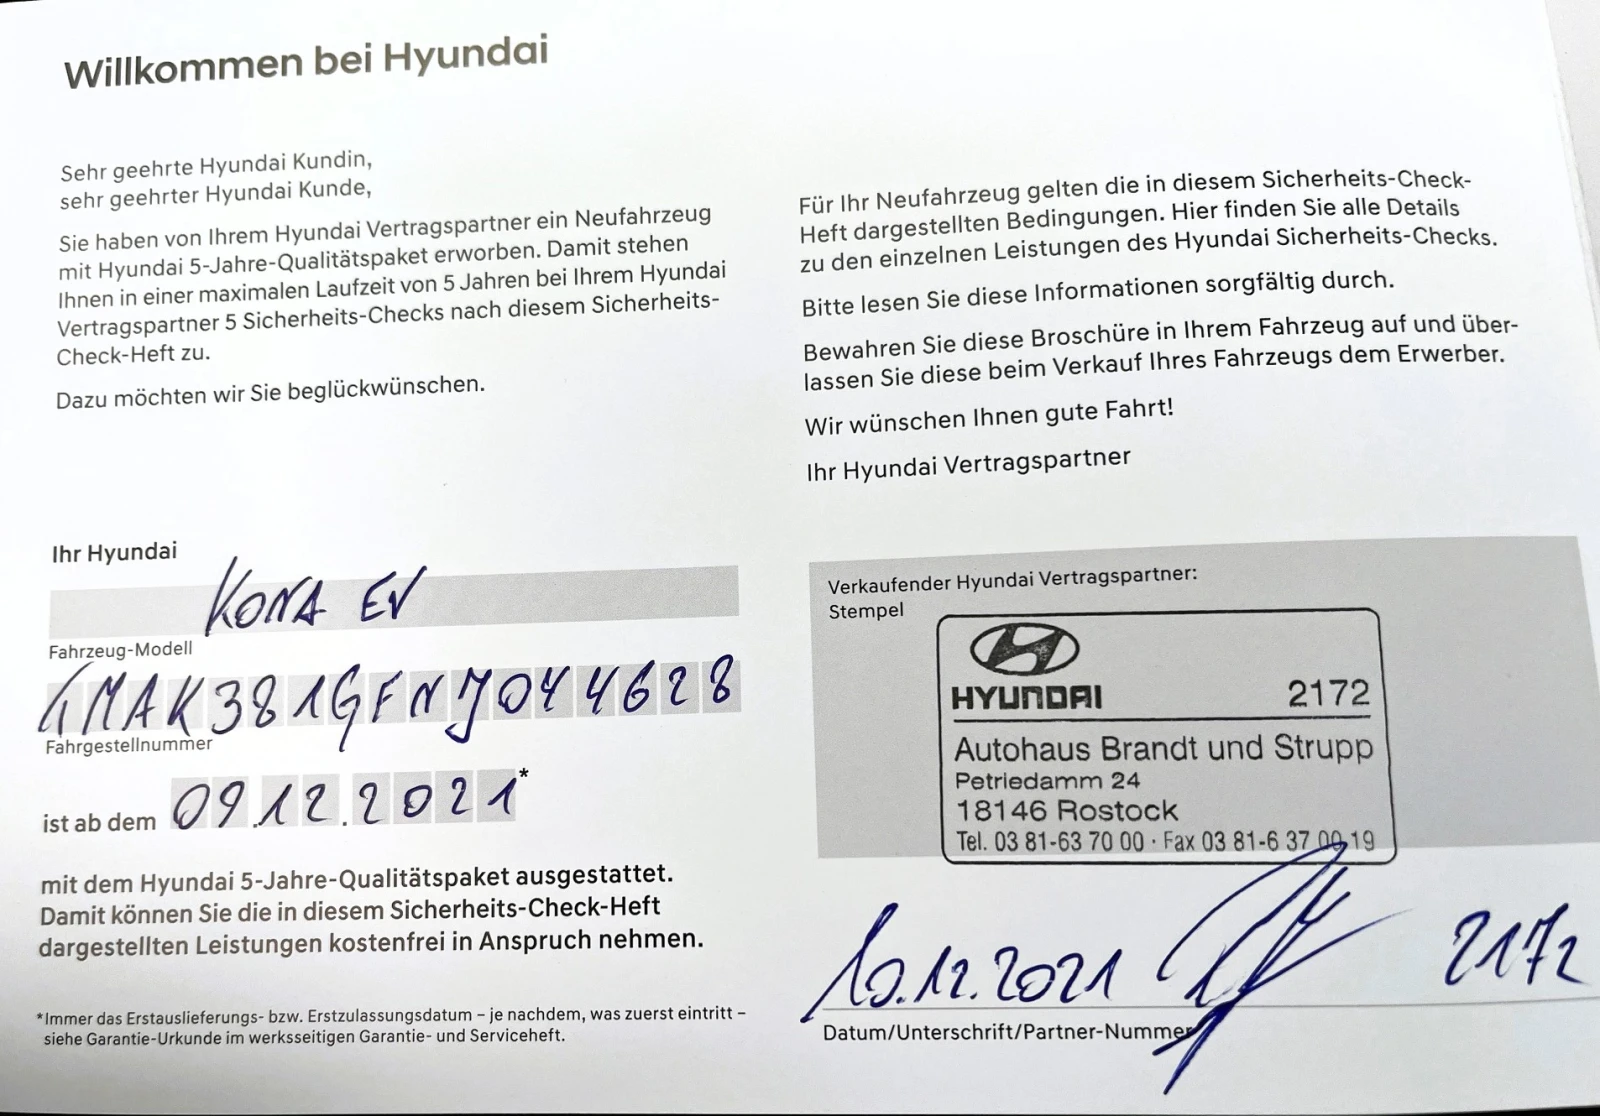 Willkommen bei Hyundai
Sehr geehrte Hyundai Kundin,
sehr geehrter Hyundai Kunde,
Sie haben von Ihrem Hyundai Vertragspartner ein Neufahrzeug
mit Hyundai 5-Jahre-Qualitätspaket erworben. Damit stehen
Ihnen in einer maximalen Laufzeit von 5 Jahren bei Ihrem Hyundai
Vertragspartner 5 Sicherheits-Checks nach diesem Sicherheits-
Check-Heft zu.
Dazu möchten wir Sie beglückwünschen.
Für Ihr Neufahrzeug gelten die in diesem Sicherheits-Check-
Heft dargestellten Bedingungen. Hier finden Sie alle Details
zu den einzelnen Leistungen des Hyundai Sicherheits-Checks.
Bitte lesen Sie diese Informationen sorgfältig durch.
Bewahren Sie diese Broschüre in Ihrem Fahrzeug auf und über-
lassen Sie diese beim Verkauf Ihres Fahrzeugs dem Erwerber.
Wir wünschen Ihnen gute Fahrt!
Ihr Hyundai Vertragspartner
Ihr Hyundai
KONA EV
Fahrzeug-Modell
TMAK381GFNJ044628
Fahrgestellnummer
ist ab dem 09.12.2021*
mit dem Hyundai 5-Jahre-Qualitätspaket ausgestattet.
Damit können Sie die in diesem Sicherheits-Check-Heft
dargestellten Leistungen kostenfrei in Anspruch nehmen.
*Immer das Erstauslieferungs- bzw. Erstzulassungsdatum – je nachdem, was zuerst eintritt –
siehe Garantie-Urkunde im werksseitigen Garantie- und Serviceheft.
Verkaufender Hyundai Vertragspartner:
Stempel
HYUNDAI 2172
Autohaus Brandt und Strupp
Petriedamm 24
18146 Rostock
Tel. 03 81-63 70 00 · Fax 03 81-6 37 00 19
10.12.2021 2172
Datum/Unterschrift/Partner-Nummer